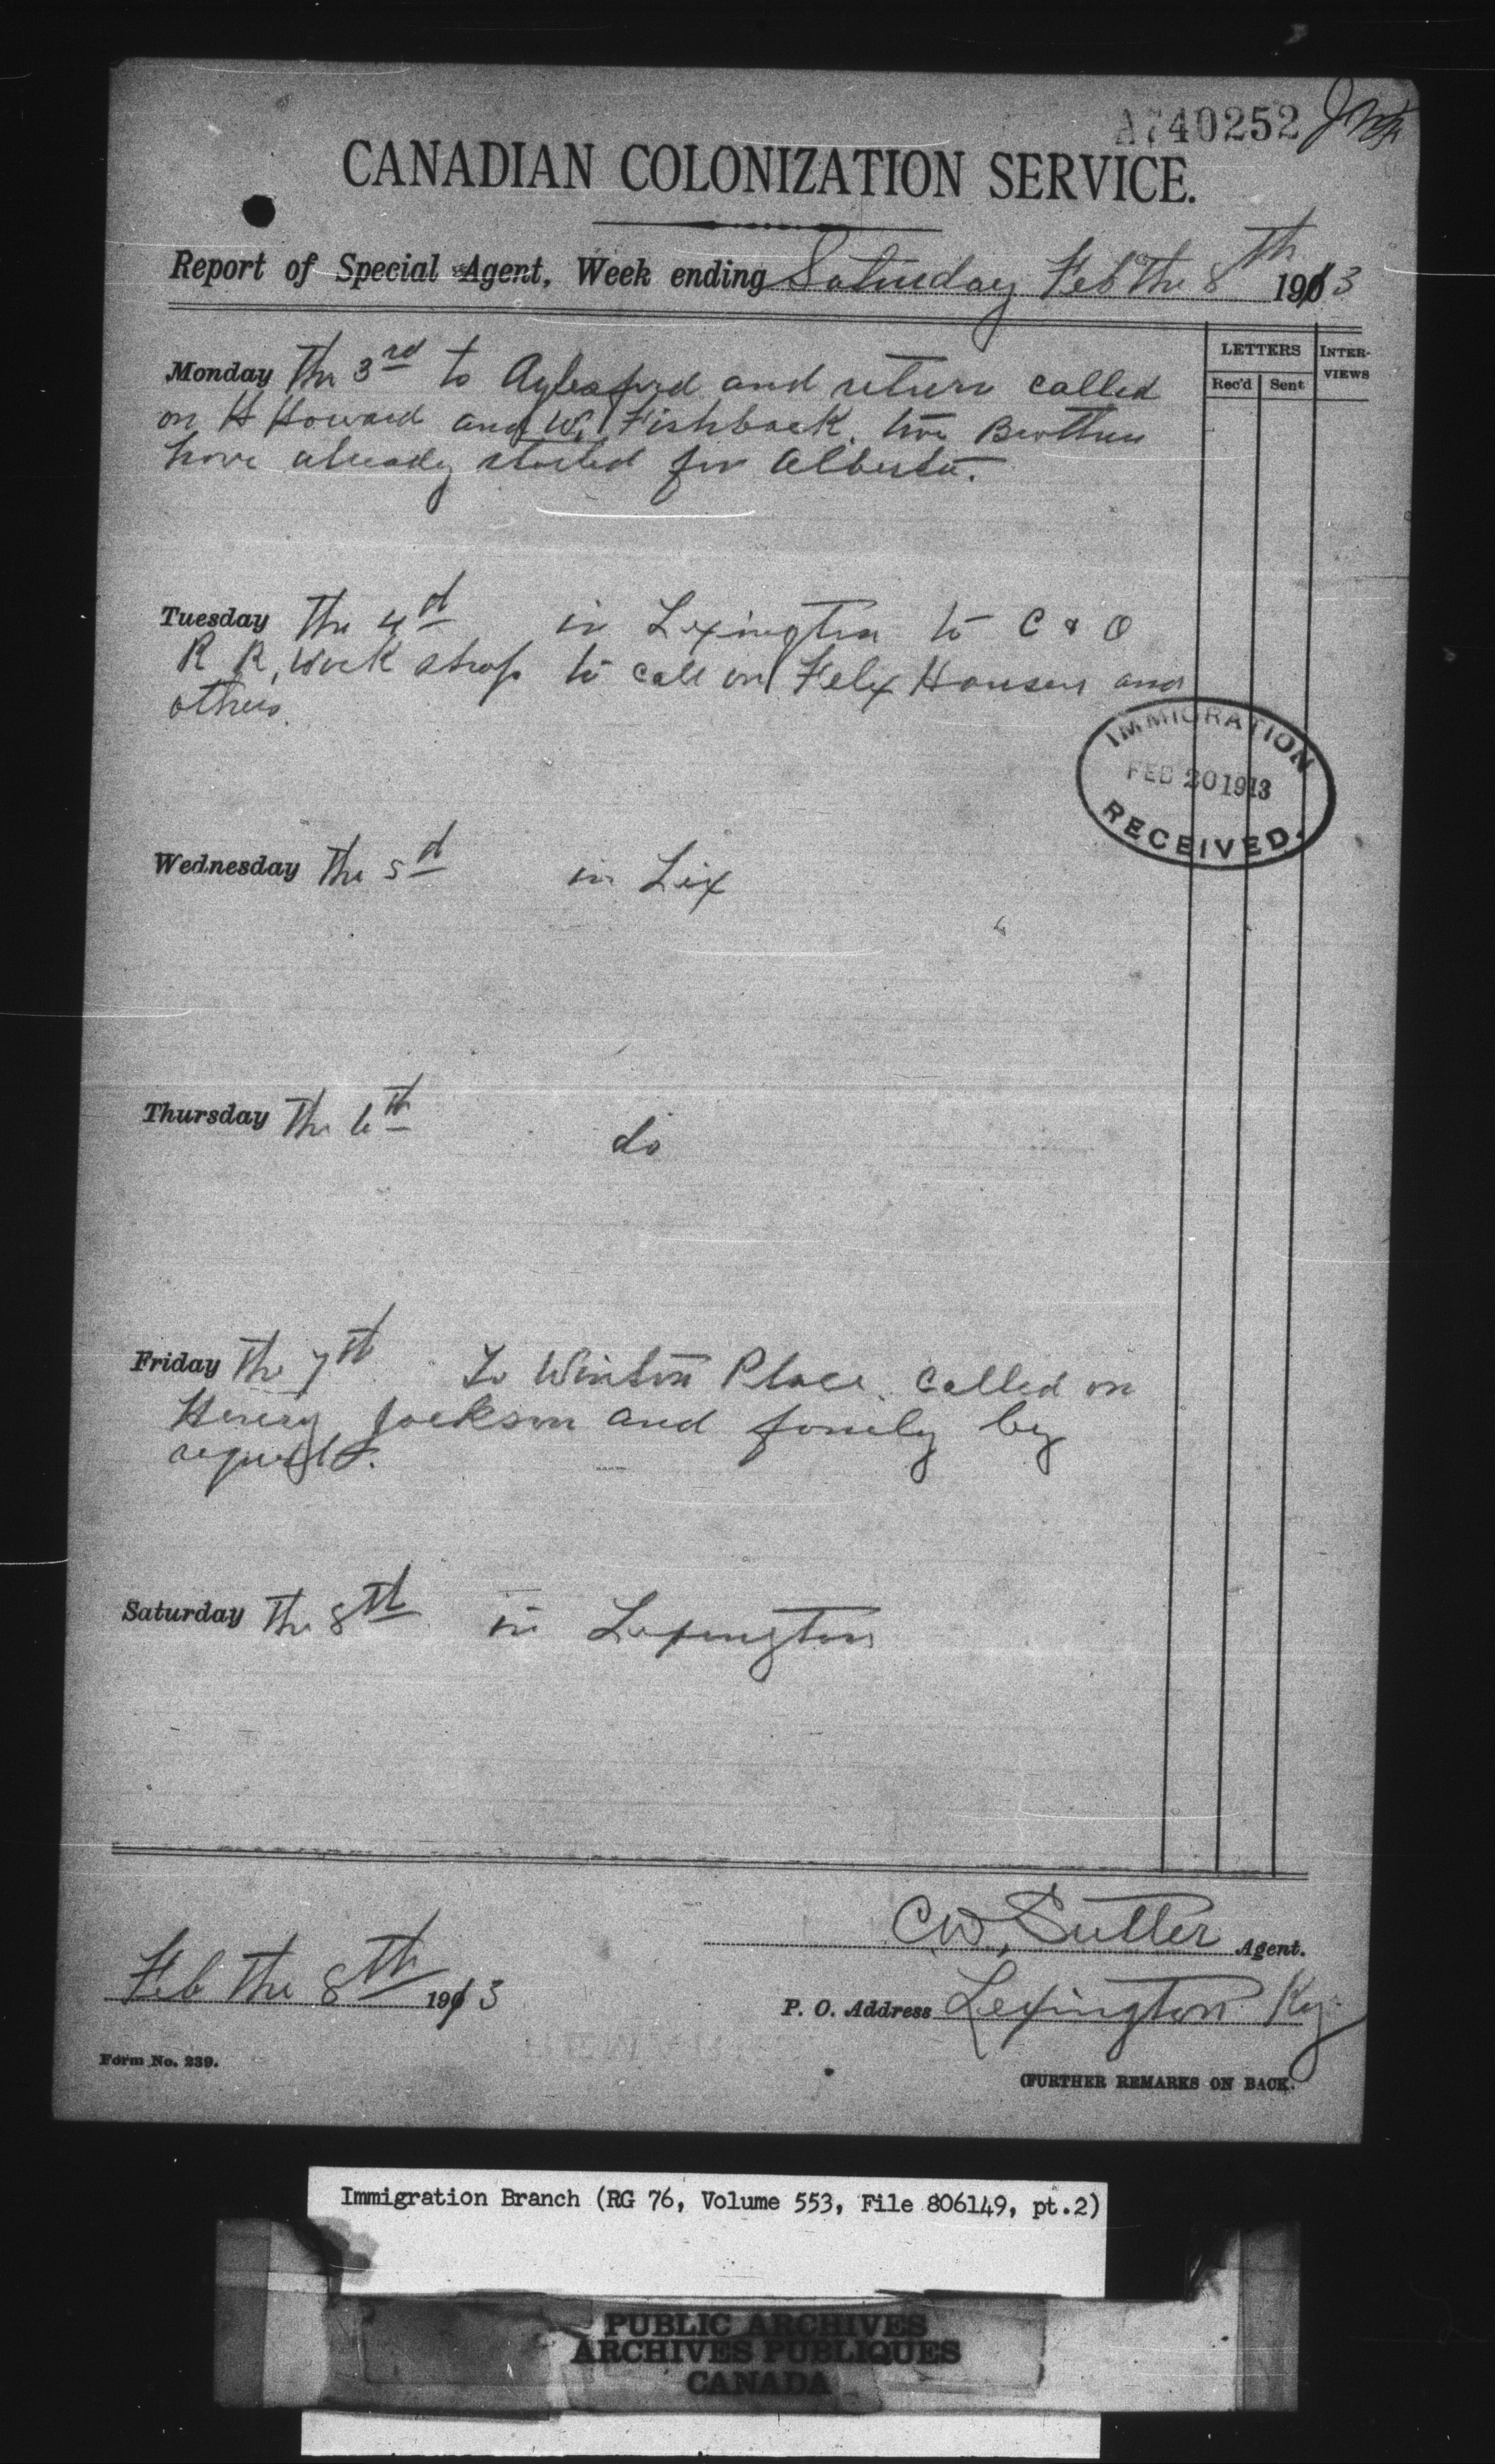 A740252
CANADIAN COLONIZATION SERVICE.
Report of Special Agent, Week ending Saturday Feb The 8th 1913
LETTERS
INTER-
VIEWS
Rec'd Sent
Monday The 3rd to and return called
on H Howard and W. Fishback. two Brothers
have already started for Alberta.
Tuesday The 4d in Lexington to C & O
R R, Work shops to call on Felix Housen and
others.
IMMIGRATION
FEB 20 1913
RECEIVED.
Wednesday The 5d in Lex
Thursday The 6th do
Friday The 7th To Winton Place. called on
Henery Jackson and family by
request.
Saturday The 8th in Lexington
C.W. Sutter Agent.
Feb The 8th 1913
P. O. Address Lexington Ky
Form No. 239.
(FURTHER REMARKS ON BACK.
Immigration Branch (RG 76, Volume 553, File 806149, pt.2)
PUBLIC ARCHIVES
ARCHIVES PUBLIQUES
CANADA